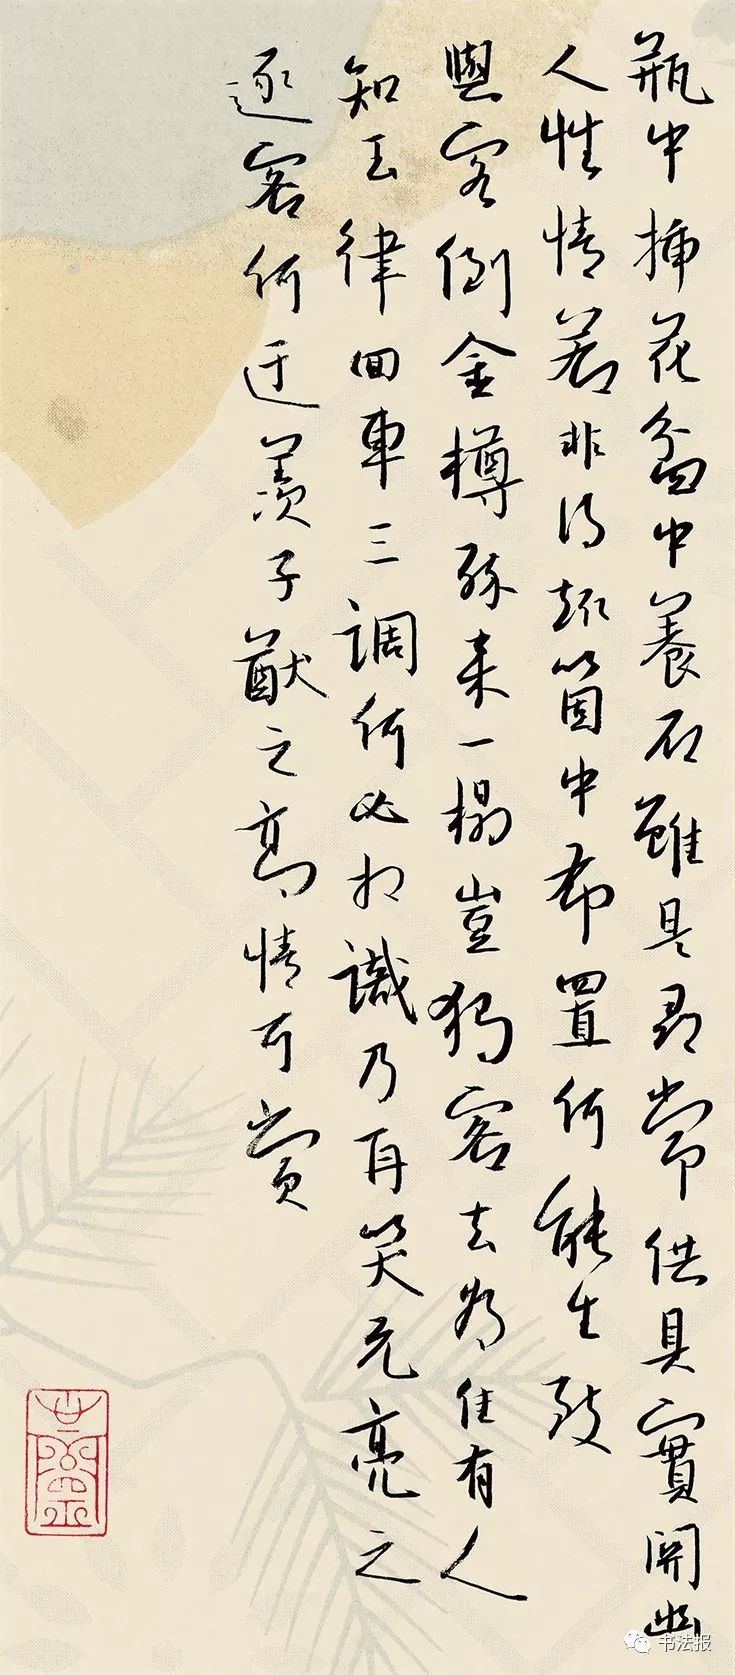 瓶中插花盆中養石雖是尋常供具實關幽
人性情若非得趣箇中布置何能生致
與客倒金樽醉來一榻豈獨客去為佳有人
知玉律回車三調何必相識乃再笑元亮之
逐客何迂羨子猷之高情可賞
书法报